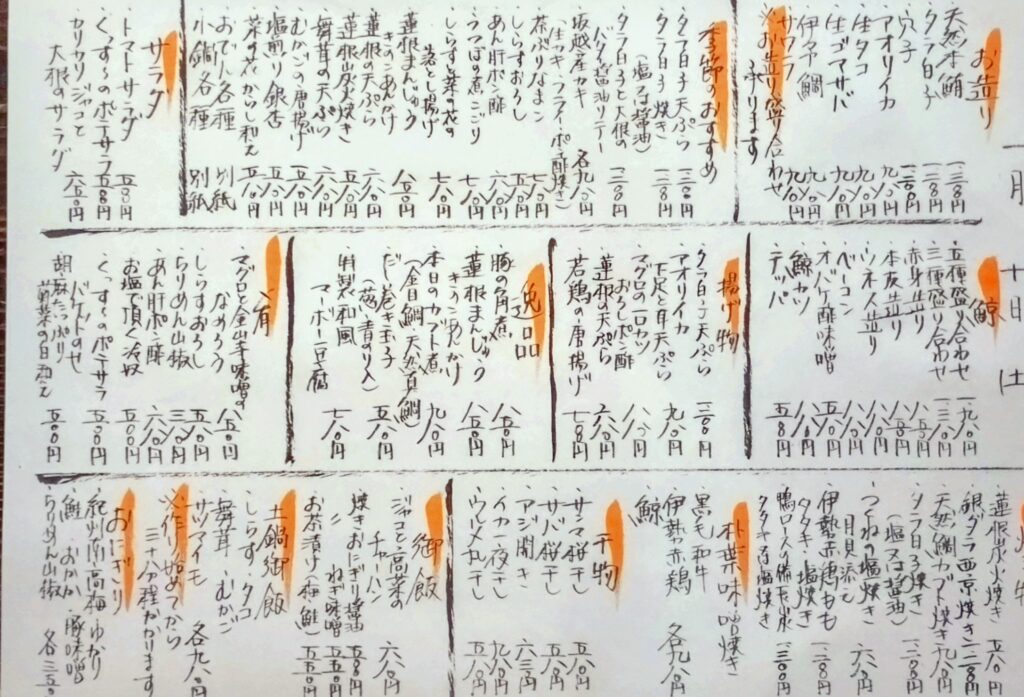 一月十日
お造り
天然本鮪 一三〇円
タラ白子 一三〇円
穴子
アオリイカ 九八〇円
生タコ 九八〇円
生ゴマサバ 九八〇円
伊佐木
鯛 九八〇円
サワラ 九八〇円
※お造り盛り合わせ
承ります
季節のおすすめ
タラ白子天ぷら
タラ白子焼き
(塩又は醤油)
タラ白子と大根の
バター醤油ソテー
坂越産カキ 各九八〇円
(生カキ・フライ・ポン酢・焼き)
茶ぶりなまこ 七八〇円
しらすおろし 五八〇円
あん肝ポン酢 六八〇円
うつぼ煮こごり
しらすと菜の花の
落とし揚げ
蓮根まんじゅう
きのこあんかけ 八五〇円
蓮根の天ぷら 六八〇円
蓮根炭火焼き 五八〇円
舞茸の天ぷら
むかごの唐揚げ 五八〇円
塩煎り銀杏
菜の花からし和え
おでん各種 別紙
小鍋各種 別紙
サラダ
トマトサラダ 五八〇円
くっすーのポテサラ 五五〇円
カリカリジャコと
大根のサラダ 六五〇円
鯨
五種盛り合わせ 一九八〇円
三種盛り合わせ 一三八〇円
赤身造り
本皮造り
ウネス造り
ベーコン
オバケ酢味噌
鯨カツ
テッパ 五八〇円
揚げ物
タラ白子天ぷら
アオリイカ
下足と耳天ぷら
マグロの一口カツ
おろしポン酢
蓮根の天ぷら 六八〇円
若鶏の唐揚げ 七八〇円
逸品
豚の角煮 八五〇円
蓮根まんじゅう
きのこあんかけ 八五〇円
本日のカブト煮 九八〇円
(金目鯛・天然真鯛)
だし巻き玉子 五八〇円
(葱・青のり入)
特製和風
マーボー豆腐 七八〇円
一肴
マグロと金山寺味噌の
なめろう 八五〇円
しらすおろし 五八〇円
ちりめん山椒 三八〇円
あん肝ポン酢 六八〇円
お塩で頂く冷奴 五〇〇円
くっすーのポテサラ
バゲットのせ 五五〇円
胡麻たっぷり
菊菜の白和え 五五〇円
蓮根炭火焼き 五八〇円
銀ダラ西京焼き 一二八〇円
天然鯛カブト焼き 九八〇円
タラ白子焼き
(塩又は醤油)
つくねの塩焼き 六八〇円
月見添え
伊勢赤鶏もも
タタキ・塩焼き
鴨ロースの備長炭
タタキ(又は塩焼き) 一三八〇円
朴葉味噌焼き
黒毛和牛
伊勢赤鶏
鯨 各九八〇円
干物
サンマ桜干し 五八〇円
サバ桜干し 五八〇円
アジ開き 六三〇円
イカ一夜干し 九八〇円
ウルメ丸干し 五五〇円
御飯
ジャコと高菜の
チャーハン 六八〇円
焼きおにぎり醤油 五〇〇円
〃 ねぎ味噌 五五〇円
お茶漬け(梅・鮭) 五五〇円
土鍋御飯
しらす タコ
舞茸 むかご
サツマイモ 各九八〇円
※作り始めてから
三十八分程かかります
おにぎり
紀州南高梅 ゆかり
鮭 おかか 豚味噌
ちりめん山椒 各三五〇